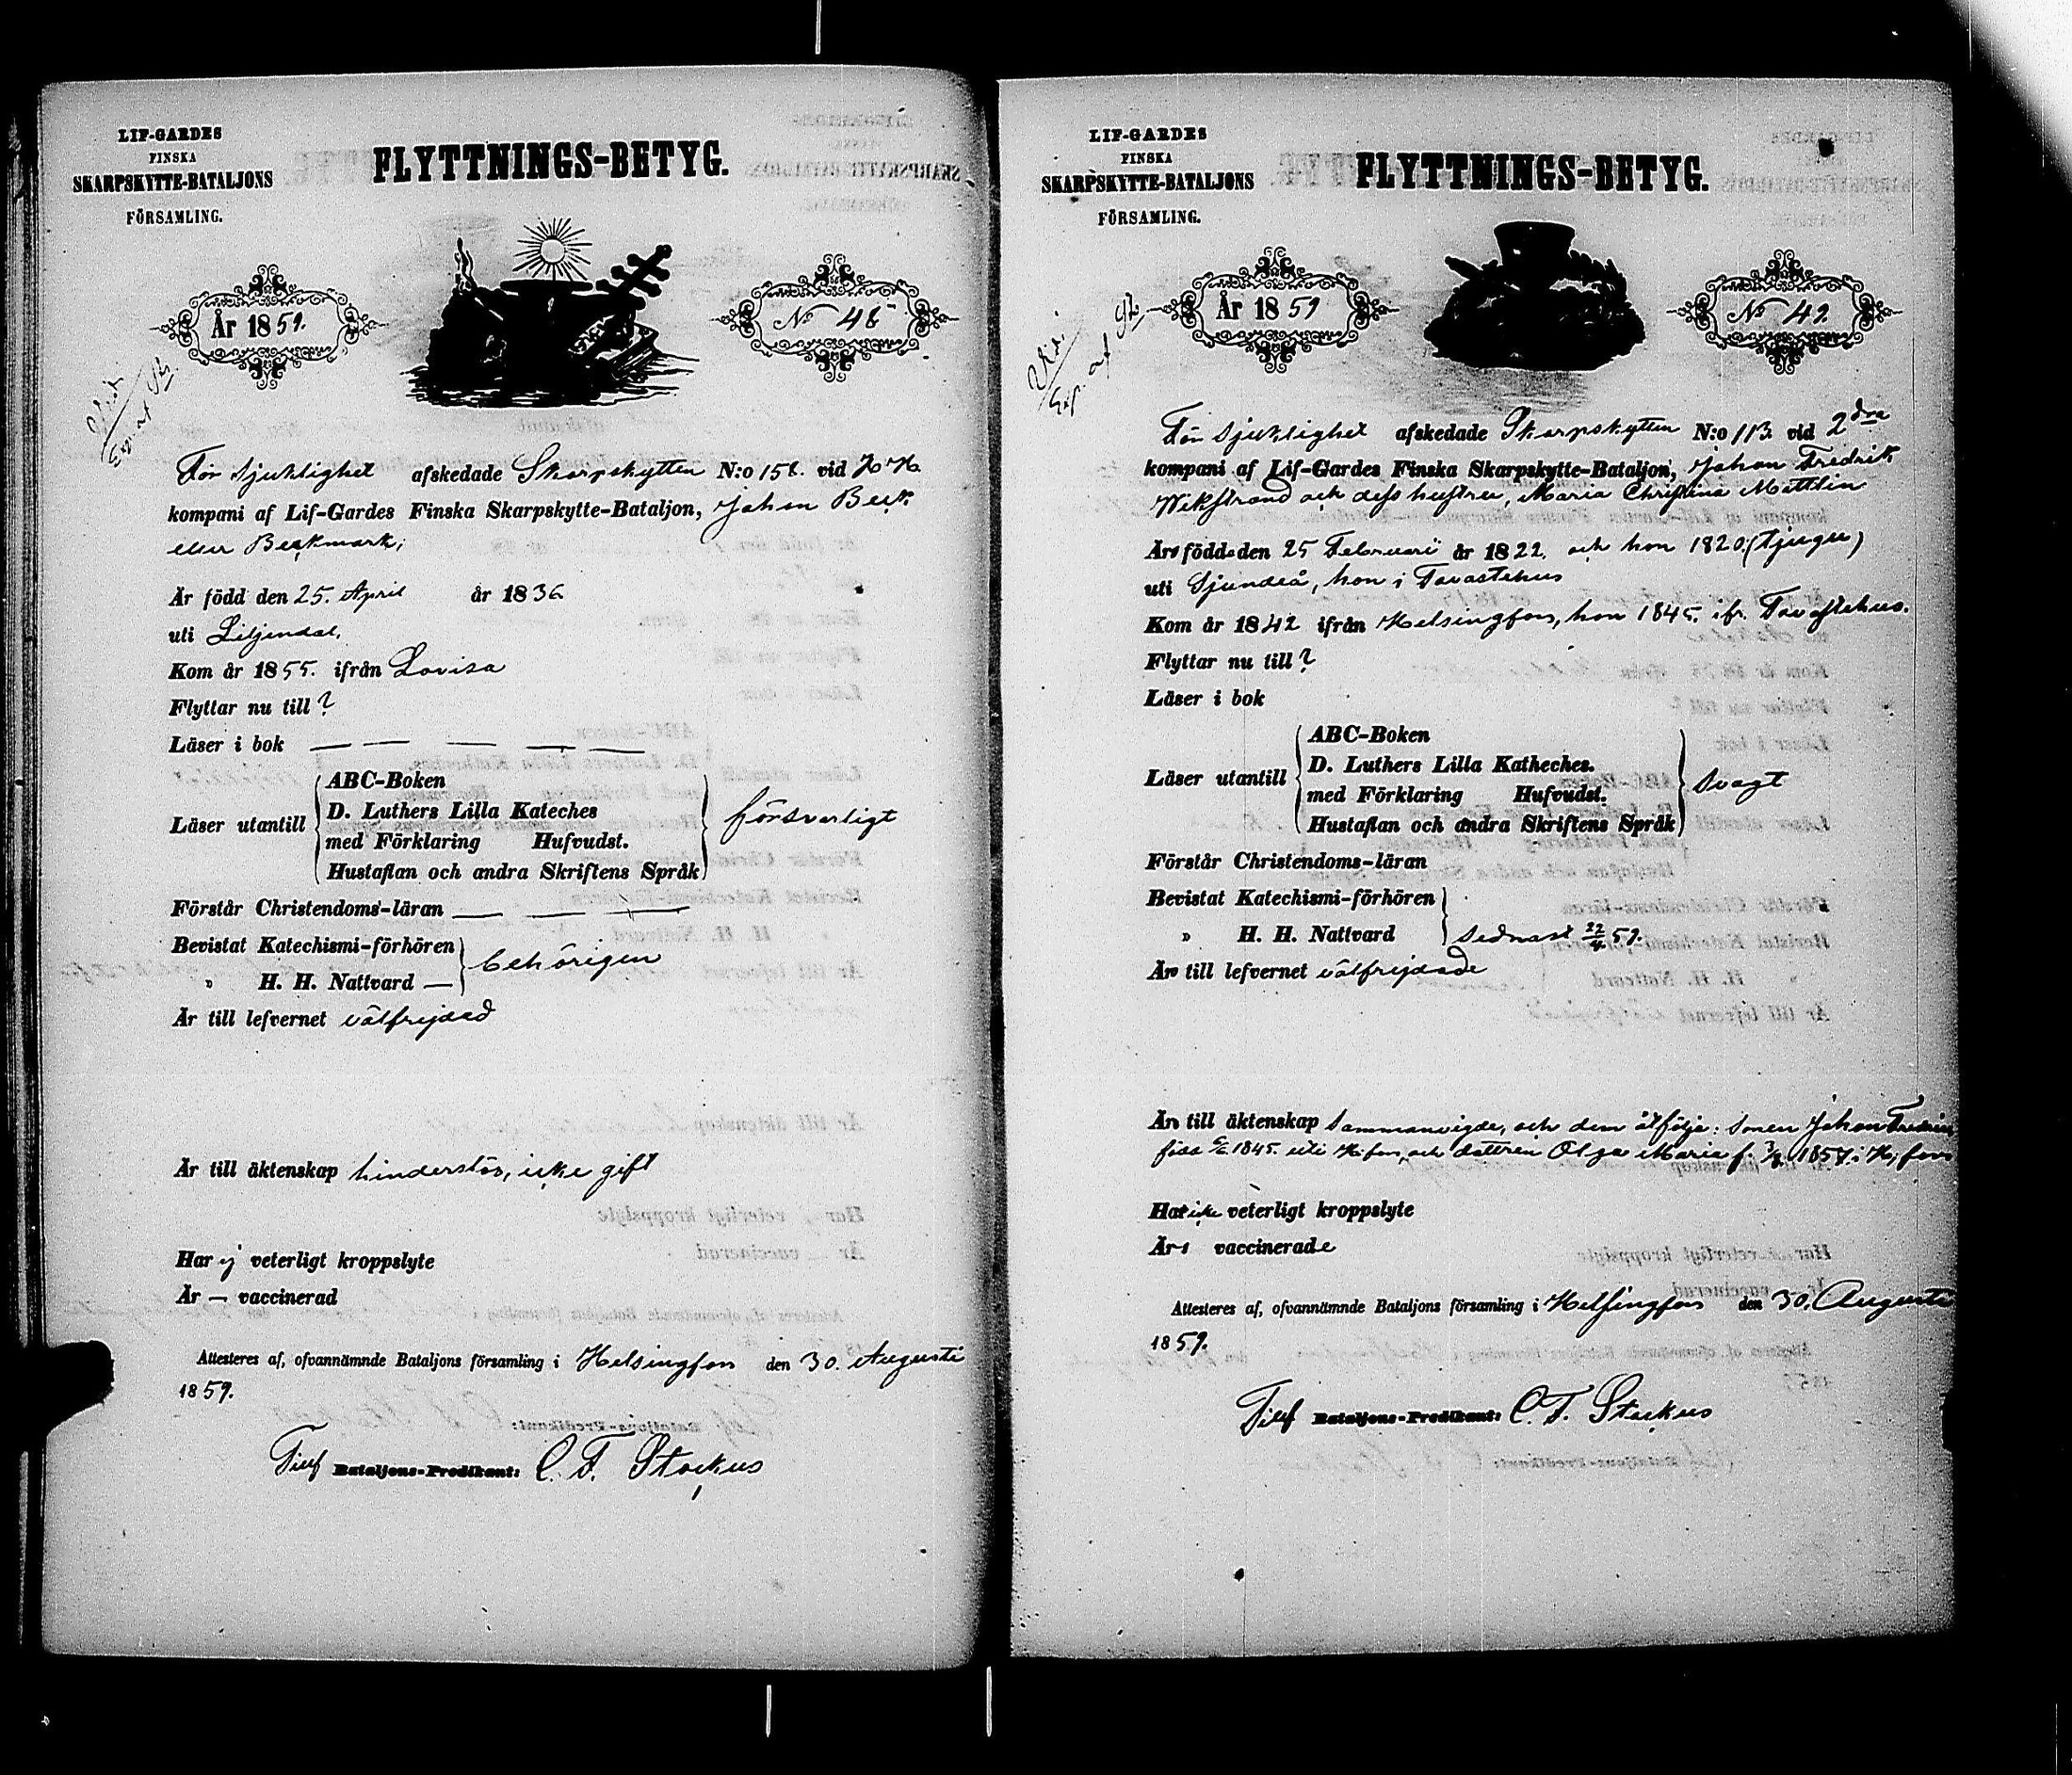 LIF-GARDES
FINSKA
SKARPSKYTTE-BATALJONS
FÖRSAMLING.
FLYTTNINGS-BETYG.
År 1859.
No 48
För sjuklighet afskedade Skarpskytten N:o 158. vid
kompani af Lif-Gardes Finska Skarpskytte-Bataljon, Johan Beck
eller Beckmark;
Är född den 25. April år 1836
uti Liljendal,
Kom år 1855. ifrån Lovisa
Flyttar nu till ?
Läser i bok — — — — —
Läser utantill
ABC-Boken
D. Luthers Lilla Kateches
med Förklaring Hufvudst.
Hustaflan och andra Skriftens Språk
försvarligt
Förstår Christendoms-läran — — —
Bevistat Katechismi-förhören
" H. H. Nattvard —
behörigen
Är till lefvernet välfrejdad
Är till äktenskap hinderslös, icke gift
Har ej veterligt kroppslyte
Är — vaccinerad
Attesteres af, ofvannämnde Bataljons församling i Helsingfors den 30. Augusti
1859.
Bataljons-Predikant: C. F. Stockus
LIF-GARDES
FINSKA
SKARPSKYTTE-BATALJONS
FÖRSAMLING.
FLYTTNINGS-BETYG.
År 1859
No 49
För sjuklighet afskedade Skarpskytten N:o 113. vid 2dra
kompani af Lif-Gardes Finska Skarpskytte-Bataljon, Johan Fredrik
Wikstrand och dess hustru, Maria Christina Mattlin
Äro födde den 25 Februarii år 1822. och hon 1820. (tjugu)
uti Sjundeå, hon i Tavastehus
Kom år 1842 ifrån Helsingfors, hon 1845. ifr. Tavastehus.
Flyttar nu till ?
Läser i bok
Läser utantill
ABC-Boken
D. Luthers Lilla Katheches.
med Förklaring Hufvudst.
Hustaflan och andra Skriftens Språk
svagt
Förstår Christendoms-läran
Bevistat Katechismi-förhören
" H. H. Nattvard
sednast 22/4 59.
Äro till lefvernet välfrejdade
Äro till äktenskap sammanvigde, och dem åtfölja: sonen Johan
född 1845. uti H:fors, och dottren Olga Maria f. 1857. i H:fors
Har icke veterligt kroppslyte
Äro vaccinerade
Attesteres af, ofvannämnde Bataljons församling i Helsingfors den 30. Augusti
1859.
Bataljons-Predikant: C. F. Stockus